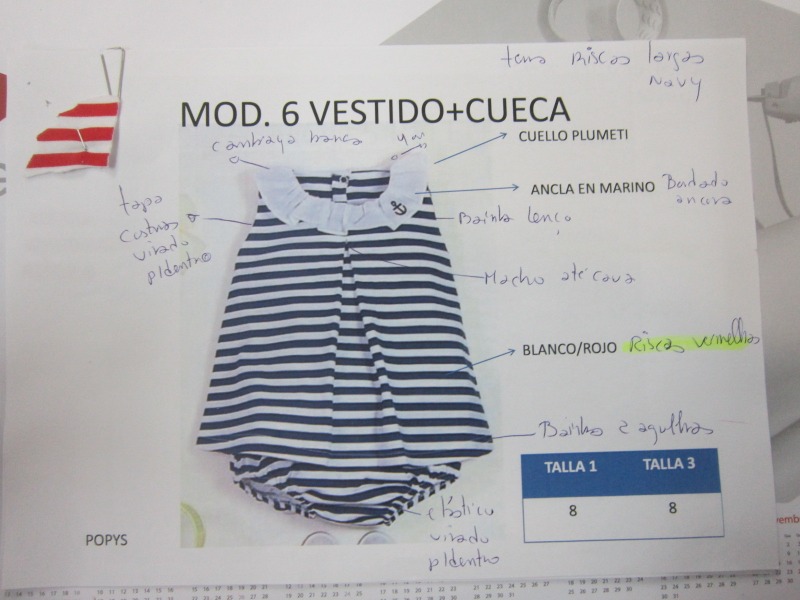 tema Riscas largas
Navy
MOD. 6 VESTIDO+CUECA
cambraya branca
CUELLO PLUMETI
ANCLA EN MARINO Bordado
ancora
tapa
costuras
virado
p/dentro
Bainha lenço
Macho até cava
BLANCO/ROJO Riscas vermelhas
Bainha 2 agulhas
TALLA 1 TALLA 3
8 8
elástico
virado
p/dentro
POPYS